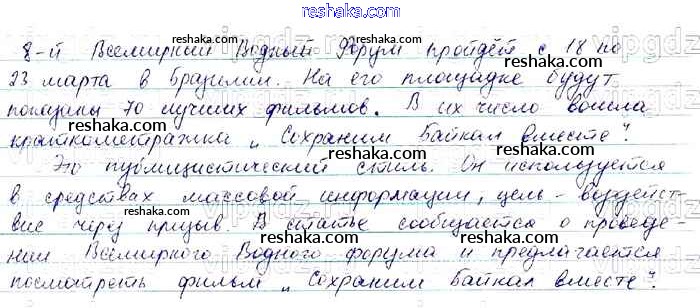 reshaka.com
8-й Всемирный Водный Форум пройдёт с 18 по
23 марта в Бразилии. На его площадке будут
показаны 70 лучших фильмов. В их число вошла
краткометражка „Сохраним Байкал вместе".
Это публицистический стиль. Он используется
в средствах массовой информации, цель - воздейст-
вие через призыв. В статье сообщается о проведе-
нии Всемирного Водного форума и предлагается
посмотреть фильм „Сохраним Байкал вместе".
reshaka.com